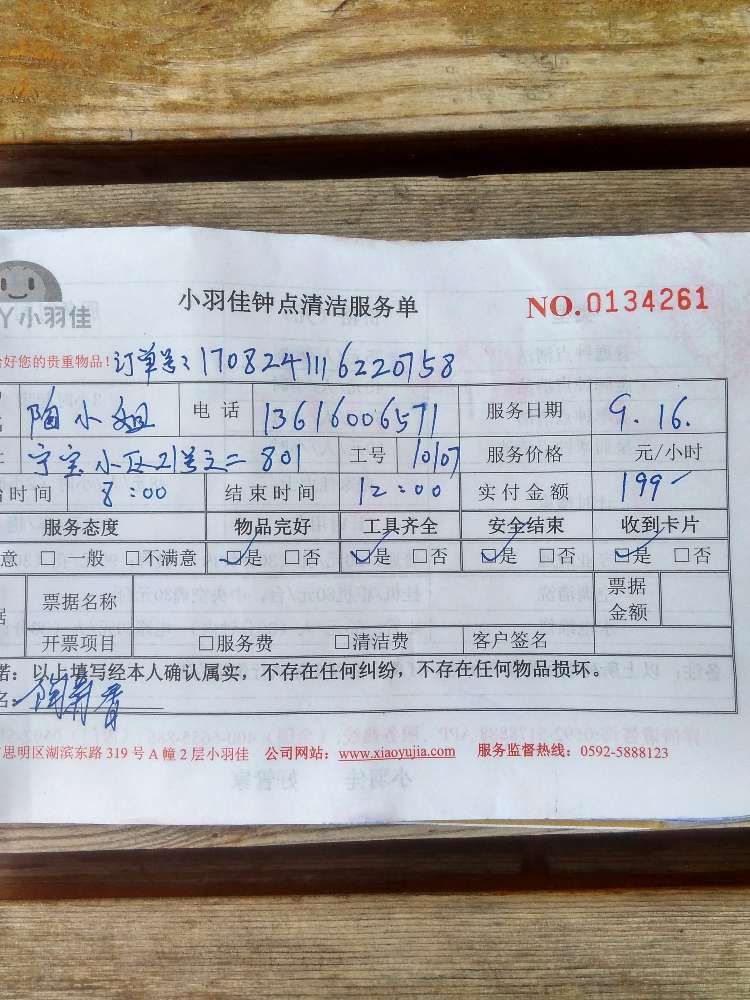 小羽佳钟点清洁服务单
NO.0134261
丫小羽佳
好您的贵重物品！订单号：1708241116220758
陶小姐 电话 13616006571 服务日期 9.16.
宁宝小区21号之二801 工号 10107 服务价格 元/小时
时间 8:00 结束时间 12:00 实付金额 199
服务态度 物品完好 工具齐全 安全结束 收到卡片
意 □一般 □不满意 □是 □否 □是 □否 □是 □否 □是 □否
票据名称 票据金额
开票项目 □服务费 □清洁费 客户签名
诺：以上填写经本人确认属实，不存在任何纠纷，不存在任何物品损坏。
名：
思明区湖滨东路319号A幢2层小羽佳 公司网站：www.xiaoyujia.com 服务监督热线：0592-5888123